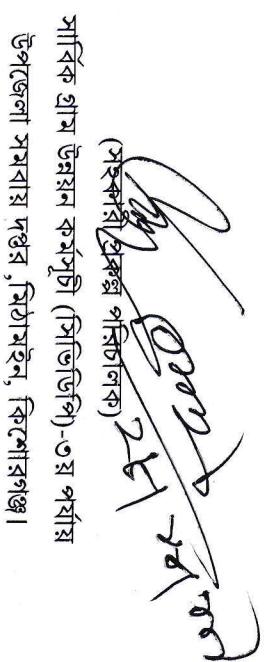 (সহকারী প্রকল্প পরিচালক)
সার্বিক গ্রাম উন্নয়ন কর্মসূচী (সিভিডিপি)-৩য় পর্যায়
উপজেলা সমবায় দপ্তর ,মিঠামইন, কিশোরগঞ্জ।